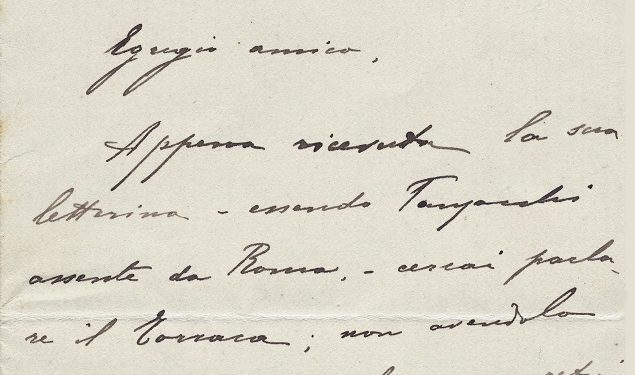 Egregio amico,
Appena ricevuta la sua
letterina - essendo
assente da Roma, - cercai parla-
re il Torraca; non avendolo